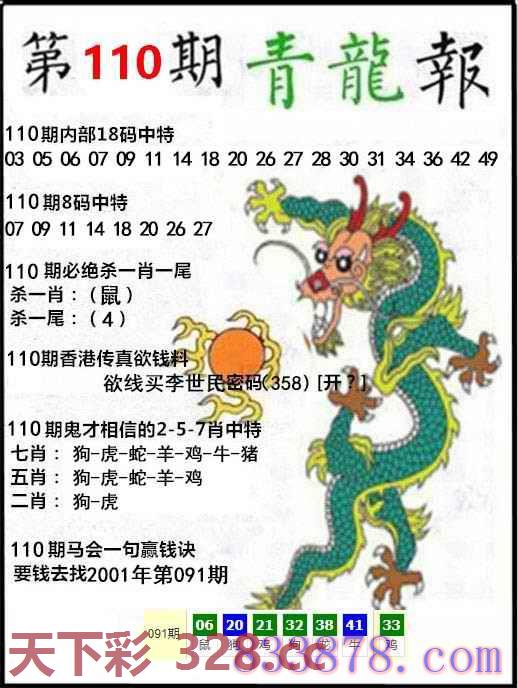 第110期青龍報
110期内部18码中特
03 05 06 07 09 11 14 18 20 26 27 28 30 31 34 36 42 49
110期8码中特
07 09 11 14 18 20 26 27
110期必绝杀一肖一尾
杀一肖：（鼠）
杀一尾：（4）
110期香港传真欲钱料
欲线买李世民密码(358) [开？]
110期鬼才相信的2-5-7肖中特
七肖：狗-虎-蛇-羊-鸡-牛-猪
五肖：狗-虎-蛇-羊-鸡
二肖：狗-虎
110期马会一句赢钱诀
要钱去找2001年第091期
091期 06 20 21 32 38 41 33
鼠 鸡 龙 牛 鸡
天下彩 328.cc
833878.com